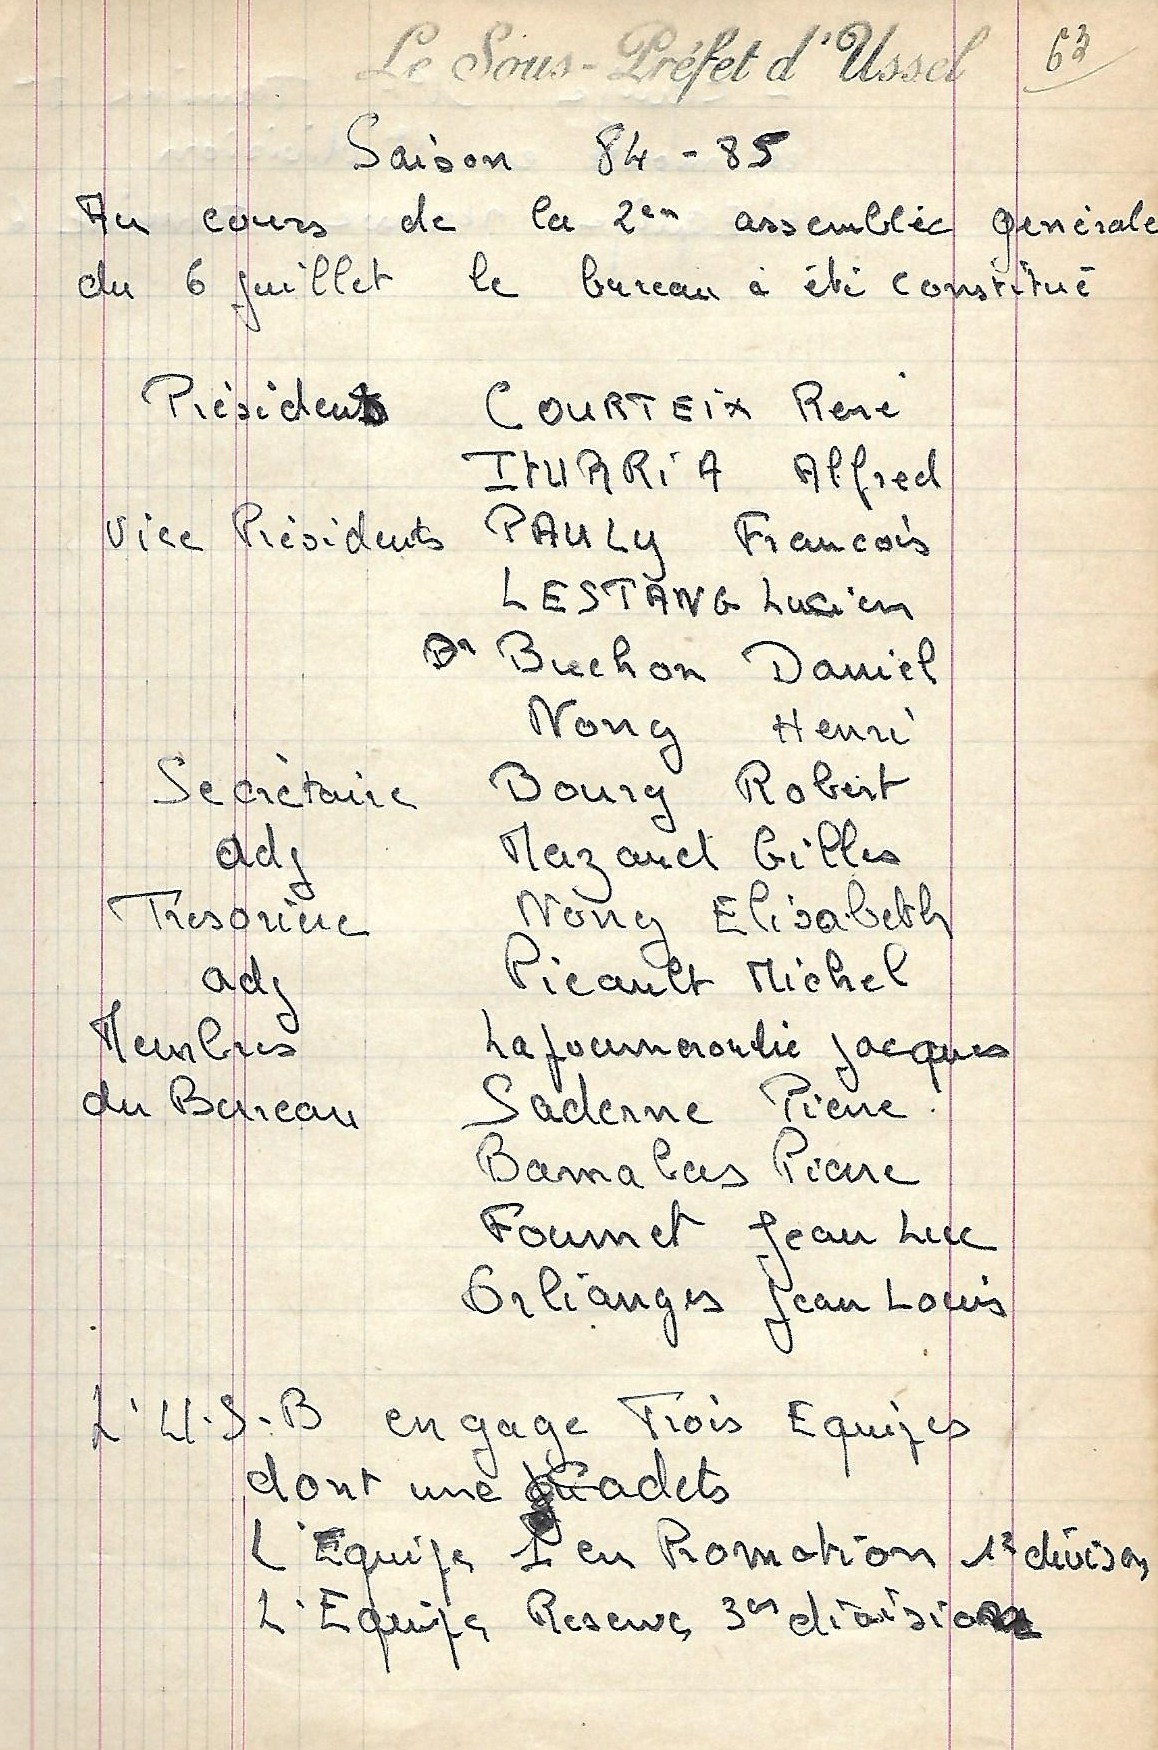 Le Sous-Préfet d'Ussel 63
Saison 84-85
Au cours de la 2em assemblée générale
du 6 juillet le bureau à été constitué
Présidents COURTEIX René
ITUARIA Alfred
Vice Présidents PAULY Francois
LESTANG Lucien
Dr Buchon Daniel
Nony Henri
Secrétaire Boury Robert
adj Mazaud Gilles
Tresorière Nony Elisabeth
adj Picault Michel
Membres Lafoumeroutie jacques
du Bureau Saderne Pierre
Barnabas Pierre
Fournet Jean Luc
Orlianges Jean Louis
L'U.S.B engage Trois Equipes
dont une cadets
L'Equipe 1 en Promotion 1e divison
L'Equipe Reserve 3em division